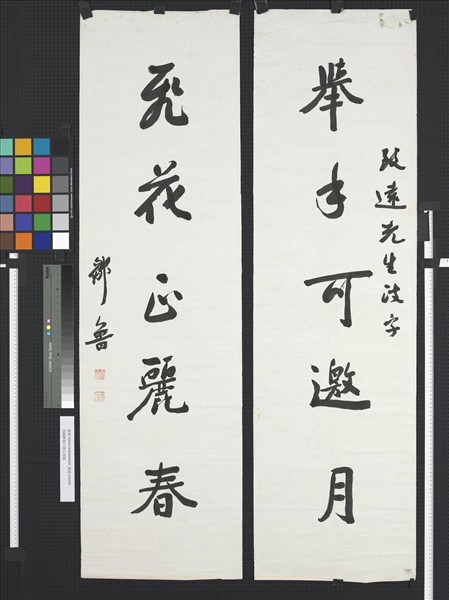 致遠先生法字
舉手可邀月
飛花正麗春
鄒魯